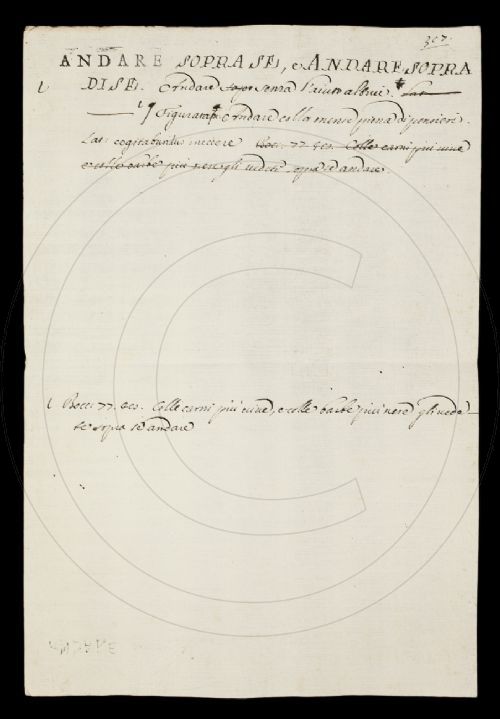 307.
ANDARE SOPRA SE, e ANDARE SOPRA
DI SE. Andare senza l'aiuto altrui. Lat
¶ Figuratam. Andare colla mente piena di pensieri.
Lat. cogitabundus incedere Bocc. 77. 868. Colle carni più vive
e colle barbe più nere gli vedete sopra sè andare.
Bocc. 77. 868. Colle carni più vive, e colle barbe più nere gli vede
te sopra sè andare
ANDARE